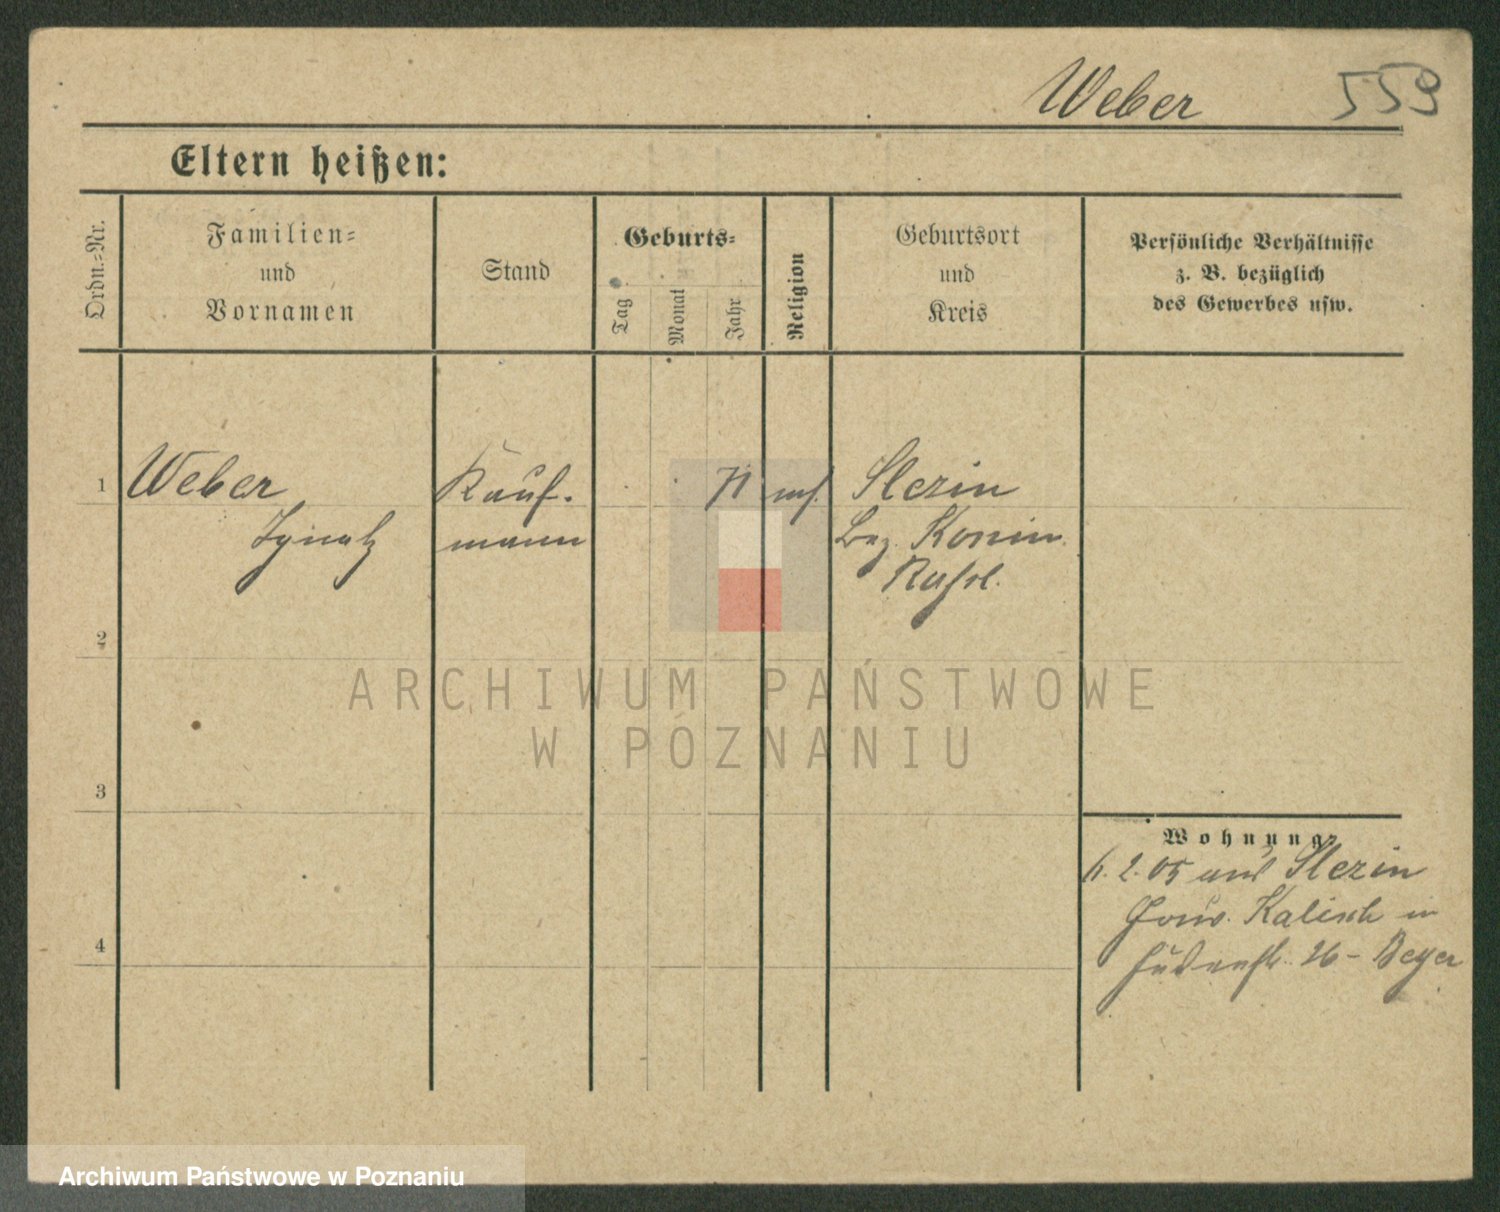 Weber 559
Eltern heißen:
Ordn.=Nr.
Familien=
und
Vornamen
Stand
Geburts=
Tag
Monat
Jahr
Religion
Geburtsort
und
Kreis
Persönliche Verhältnisse
z. B. bezüglich
des Gewerbes usw.
1 Weber Kauf- 71 Slezin
Ignatz mann Bez. Konin
Russl.
2
3
4
Wohnung
2.05 aus Slezin
Gouv. Kalisch in
26 - Beyer
ARCHIWUM PAŃSTWOWE
W POZNANIU
Archiwum Państwowe w Poznaniu